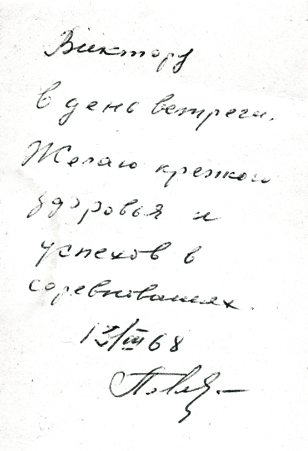 Виктору
в день встречи.
Желаю крепкого
здоровья и
успехов в
соревнованиях.
13/III 68